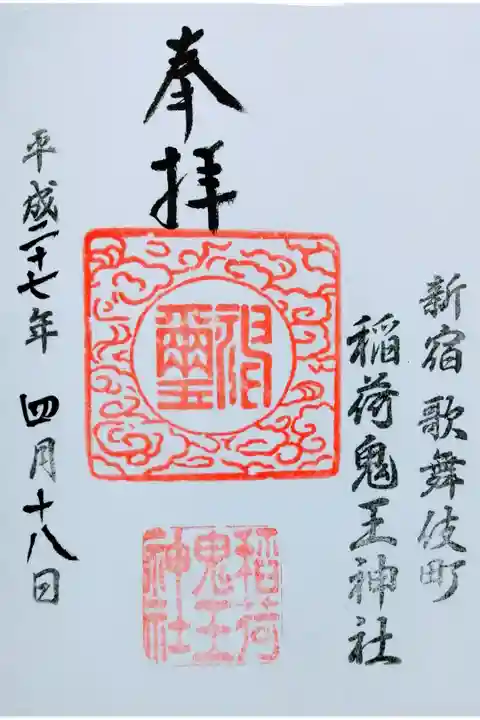 新宿歌舞伎町
稲荷鬼王神社
奉拝
稲荷
鬼王
神社
平成二十七年 四月十八日